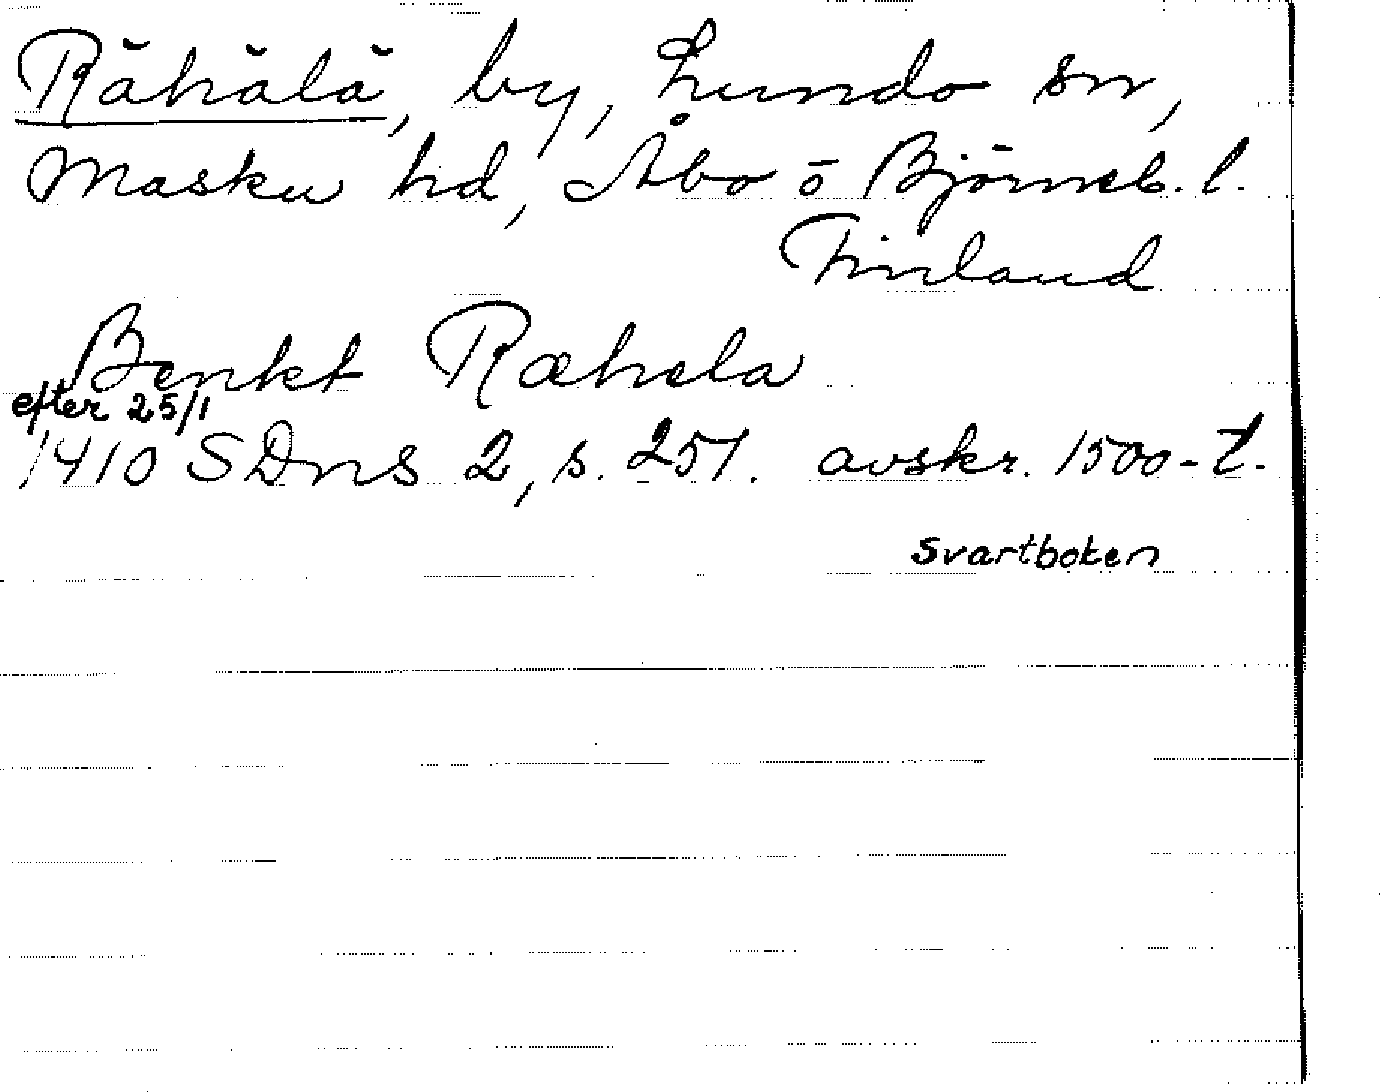 Rähälä, by, Lundo sn,
Masku hd, Åbo o Björneb. l.
Finland
Benkt Ræhela
efter 25/1
1410 SDns 2, s. 251. avskr. 1500-t.
svartboken